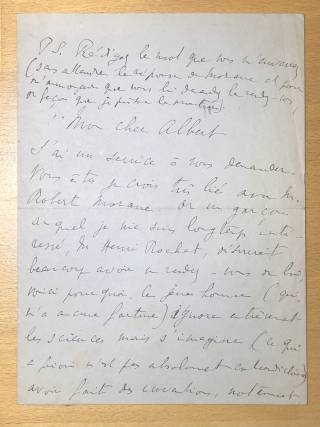 P.S. Rédigez le mot que vous m'enverrez
(sans attendre la réponse de Morane et pour
m'annoncer que vous lui demandez le rendez-vous
de façon que je puisse le montrer)
"Mon cher Albert
J'ai un service à vous demander.
Vous êtes je crois très lié avec M.
Robert Morane. Or un garçon
auquel je me suis longtemps inté-
ressé, M. Henri Rochat, désirerait
beaucoup avoir un rendez-vous de lui,
voici pourquoi. Ce jeune homme (qui
n'a aucune fortune) ignore entièrement
les sciences mais s'imagine (ce qui
a priori n'est pas absolument contradictoire)
avoir fait des inventions, notamment